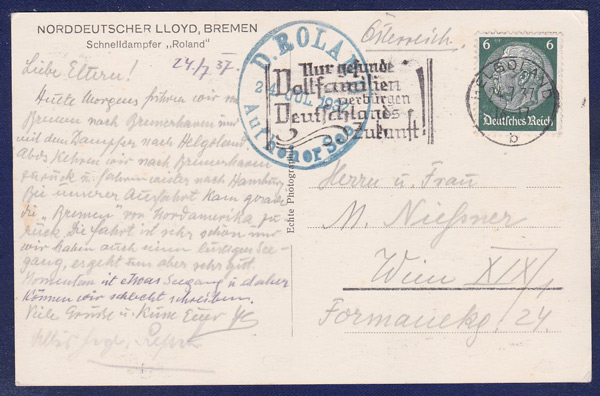 NORDDEUTSCHER LLOYD, BREMEN
Schnelldampfer „Roland"
24/7 37.
Liebe Eltern!
Heute Morgens fuhren wir von
Bremen nach Bremerhaven und
mit dem Dampfer nach Helgoland.
Abds. kehren wir nach Bremerhaven
zurück u. fahren weiter nach Hamburg
Bei unserer Ausfahrt kam gerade
die „Bremen" von Nordamerika zu-
rück. Die Fahrt ist sehr schön nur
wir haben auch einen lustigen See-
gang, ergeht uns aber sehr gut.
Momentan ist etwas Seegang u. daher
können wir schlecht schreiben.
Viele Grüße u. Küsse Euer
Echte Photographie
Österreich.
D. ROLAND
24. JUL. 1937
Auf hoher See
Nur gesunde
Vollfamilien
verbürgen
Deutschlands
Zukunft!
HELGOLAND
24.7.37
b
6 6
Deutsches Reich
Herrn u. Frau
M. Nießner
Wien XIX/
Formanekg. 24.